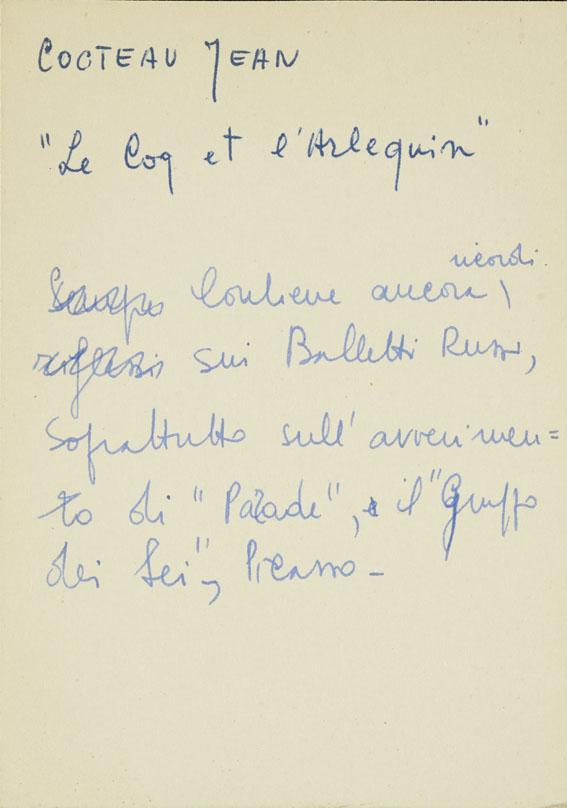 COCTEAU JEAN
"Le Coq et l'Arlequin"
ricordi
Contiene ancora \
sui Balletti Russi,
soprattutto sull'avvenimen=
to di "Parade", e il "Gruppo
dei Sei", Picasso -